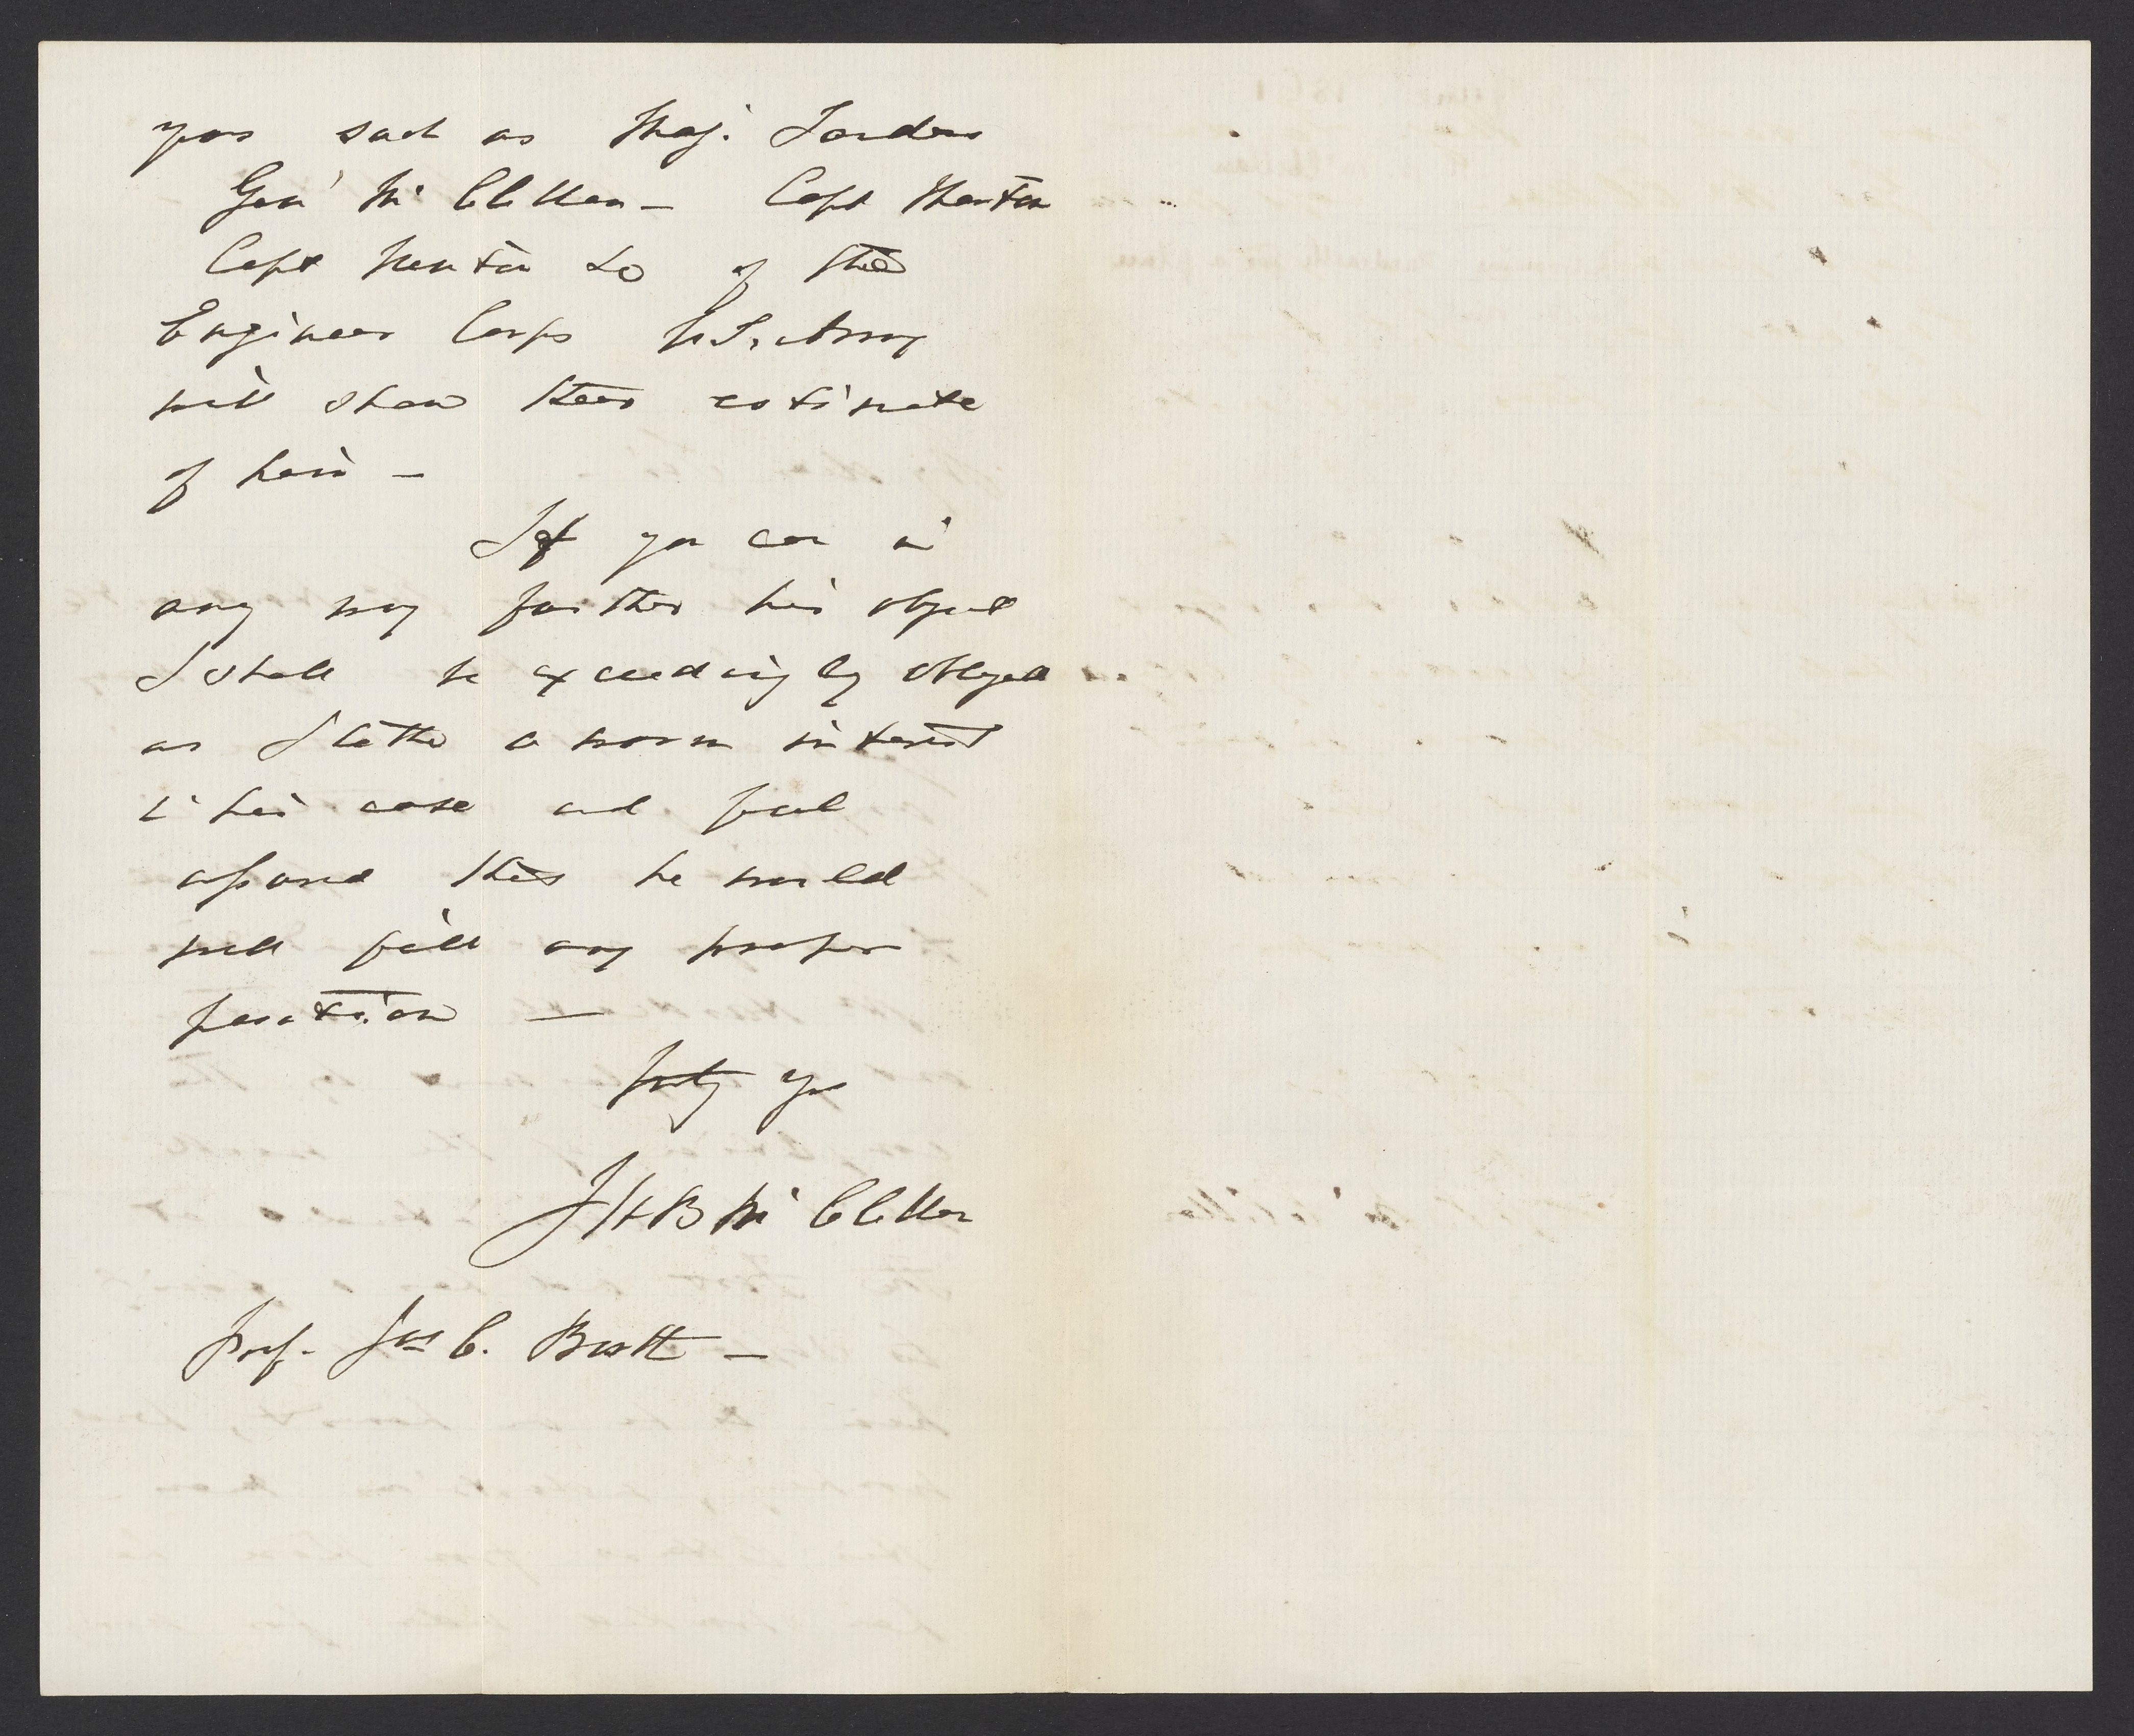 years such as Maj. Sanders
Gen' Mc Clellan — Capt
Capt Newton &c of the
Engineer Corps U.S. Army
will show their estimate
of him —
If you can in
any way further his object
I shall be exceedingly obliged
as I take a warm interest
in his case and feel
assured that he would
well fill any proper
position —
Truly yrs
J H B Mc Clellan
Prof. Jas C. Booth —